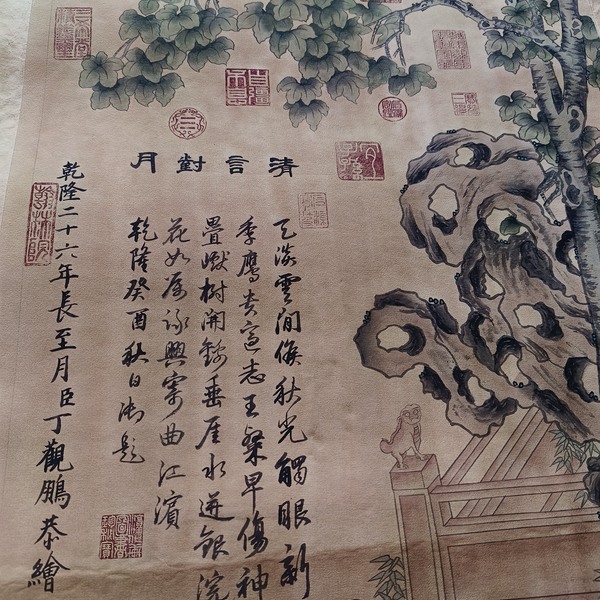 清言對月
天雲間候秋光觸眼新
季鷹貴適志王粲早傷神
疊巘樹開錦垂崖水迸銀浣
花如屬詠興寄曲江濱
乾隆癸酉秋日御題
乾隆二十六年長至月臣丁觀鵬恭繪
翰林院